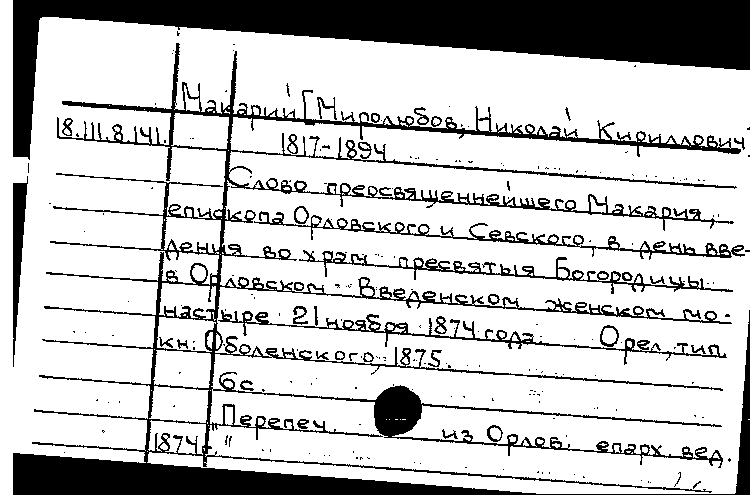 Макарий [Миролюбов, Николай Кириллович]
18.III.8.141. 1817-1894
Слово преосвященнейшего Макария,
епископа Орловского и Севского, в день вве-
дения во храм пресвятыя Богородицы
в Орловском Введенском женском мо-
настыре 21 ноября 1874 года. Орел, тип.
кн. Оболенского, 1875.
6с.
"Перепеч. из Орлов. епарх. вед.
1874г."